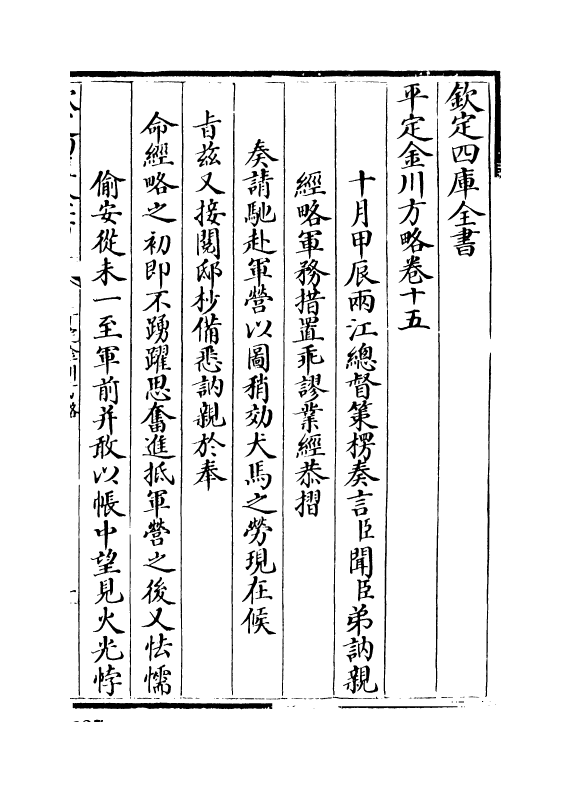 欽定四庫全書
平定金川方略卷十五
十月甲辰兩江總督策楞奏言臣聞臣弟訥親
經略軍務措置乖謬業經恭摺
奏請馳赴軍營以圖稍効犬馬之勞現在候
㫖兹又接閱邸抄備悉訥親於奉
命經略之初即不踴躍思奮進抵軍營之後又怯懦
偷安從未一至軍前并敢以帳中望見火光悖